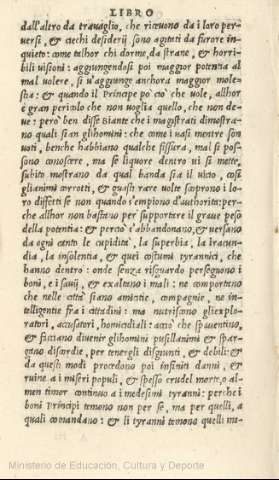 LIBRO
dall'altro da trauaglio, che riceuono da i loro per-
uersi, & ciechi desiderij sono agitati da furore in-
quieto: come talhor chi dorme, da strane, & horri-
bili uisioni: aggiungendosi poi maggior potentia al
mal uolere, si u'aggiunge anchora maggior mole-
stia: & quando il Prencipe po ciò che uole, allhor
è gran pericolo che non uoglia quello, che non de-
ue: però ben disse Biante che i magistrati dimostra-
no quali sian gli homini: che come i uasi mentre son
uoti, benche habbiano qualche fissura, mal si pos-
sono conoscere, ma se liquore dentro ui si mette,
subito mostrano da qual banda sia il uitio, così
gli animi corrotti, & guasti rare uolte scoprono i lo-
ro diffetti se non quando s'empiono d'authorità: per-
che allhor non bastano per supportare il graue peso
della potentia: & perciò s'abbandonano, & uersano
da ogni canto le cupidità, la superbia, la iracun-
dia, la insolentia, & quei costumi tyrannici, che
hanno dentro: onde senza risguardo perseguono i
boni, e i sauij, & exaltano i mali: ne comportano
che nelle città siano amicitie, compagnie, ne in-
telligentie fra i cittadini: ma nutriscono gli explo-
ratori, accusatori, homicidiali: acciò che spauentino,
& facciano diuenir gli homini pusillanimi & spar-
gano discordie, per tenergli disgiunti, & debili: &
da questi modi procedono poi infiniti danni, &
ruine a i miseri populi, & spesso crudel morte, o al-
men timor continuo a i medesimi tyranni: perche i
boni Principi temono non per se, ma per quelli, a
quali comandano: & li tyranni temono quelli me-
Ministerio de Educación, Cultura y Deporte